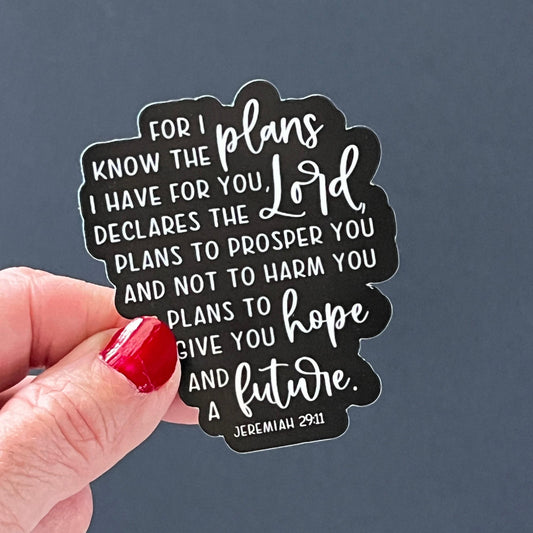 FOR I plans
KNOW THE
I HAVE FOR YOU, Lord,
DECLARES THE
PLANS TO PROSPER YOU
AND NOT TO HARM YOU
PLANS TO
GIVE YOU hope
AND
A future.
JEREMIAH 29:11